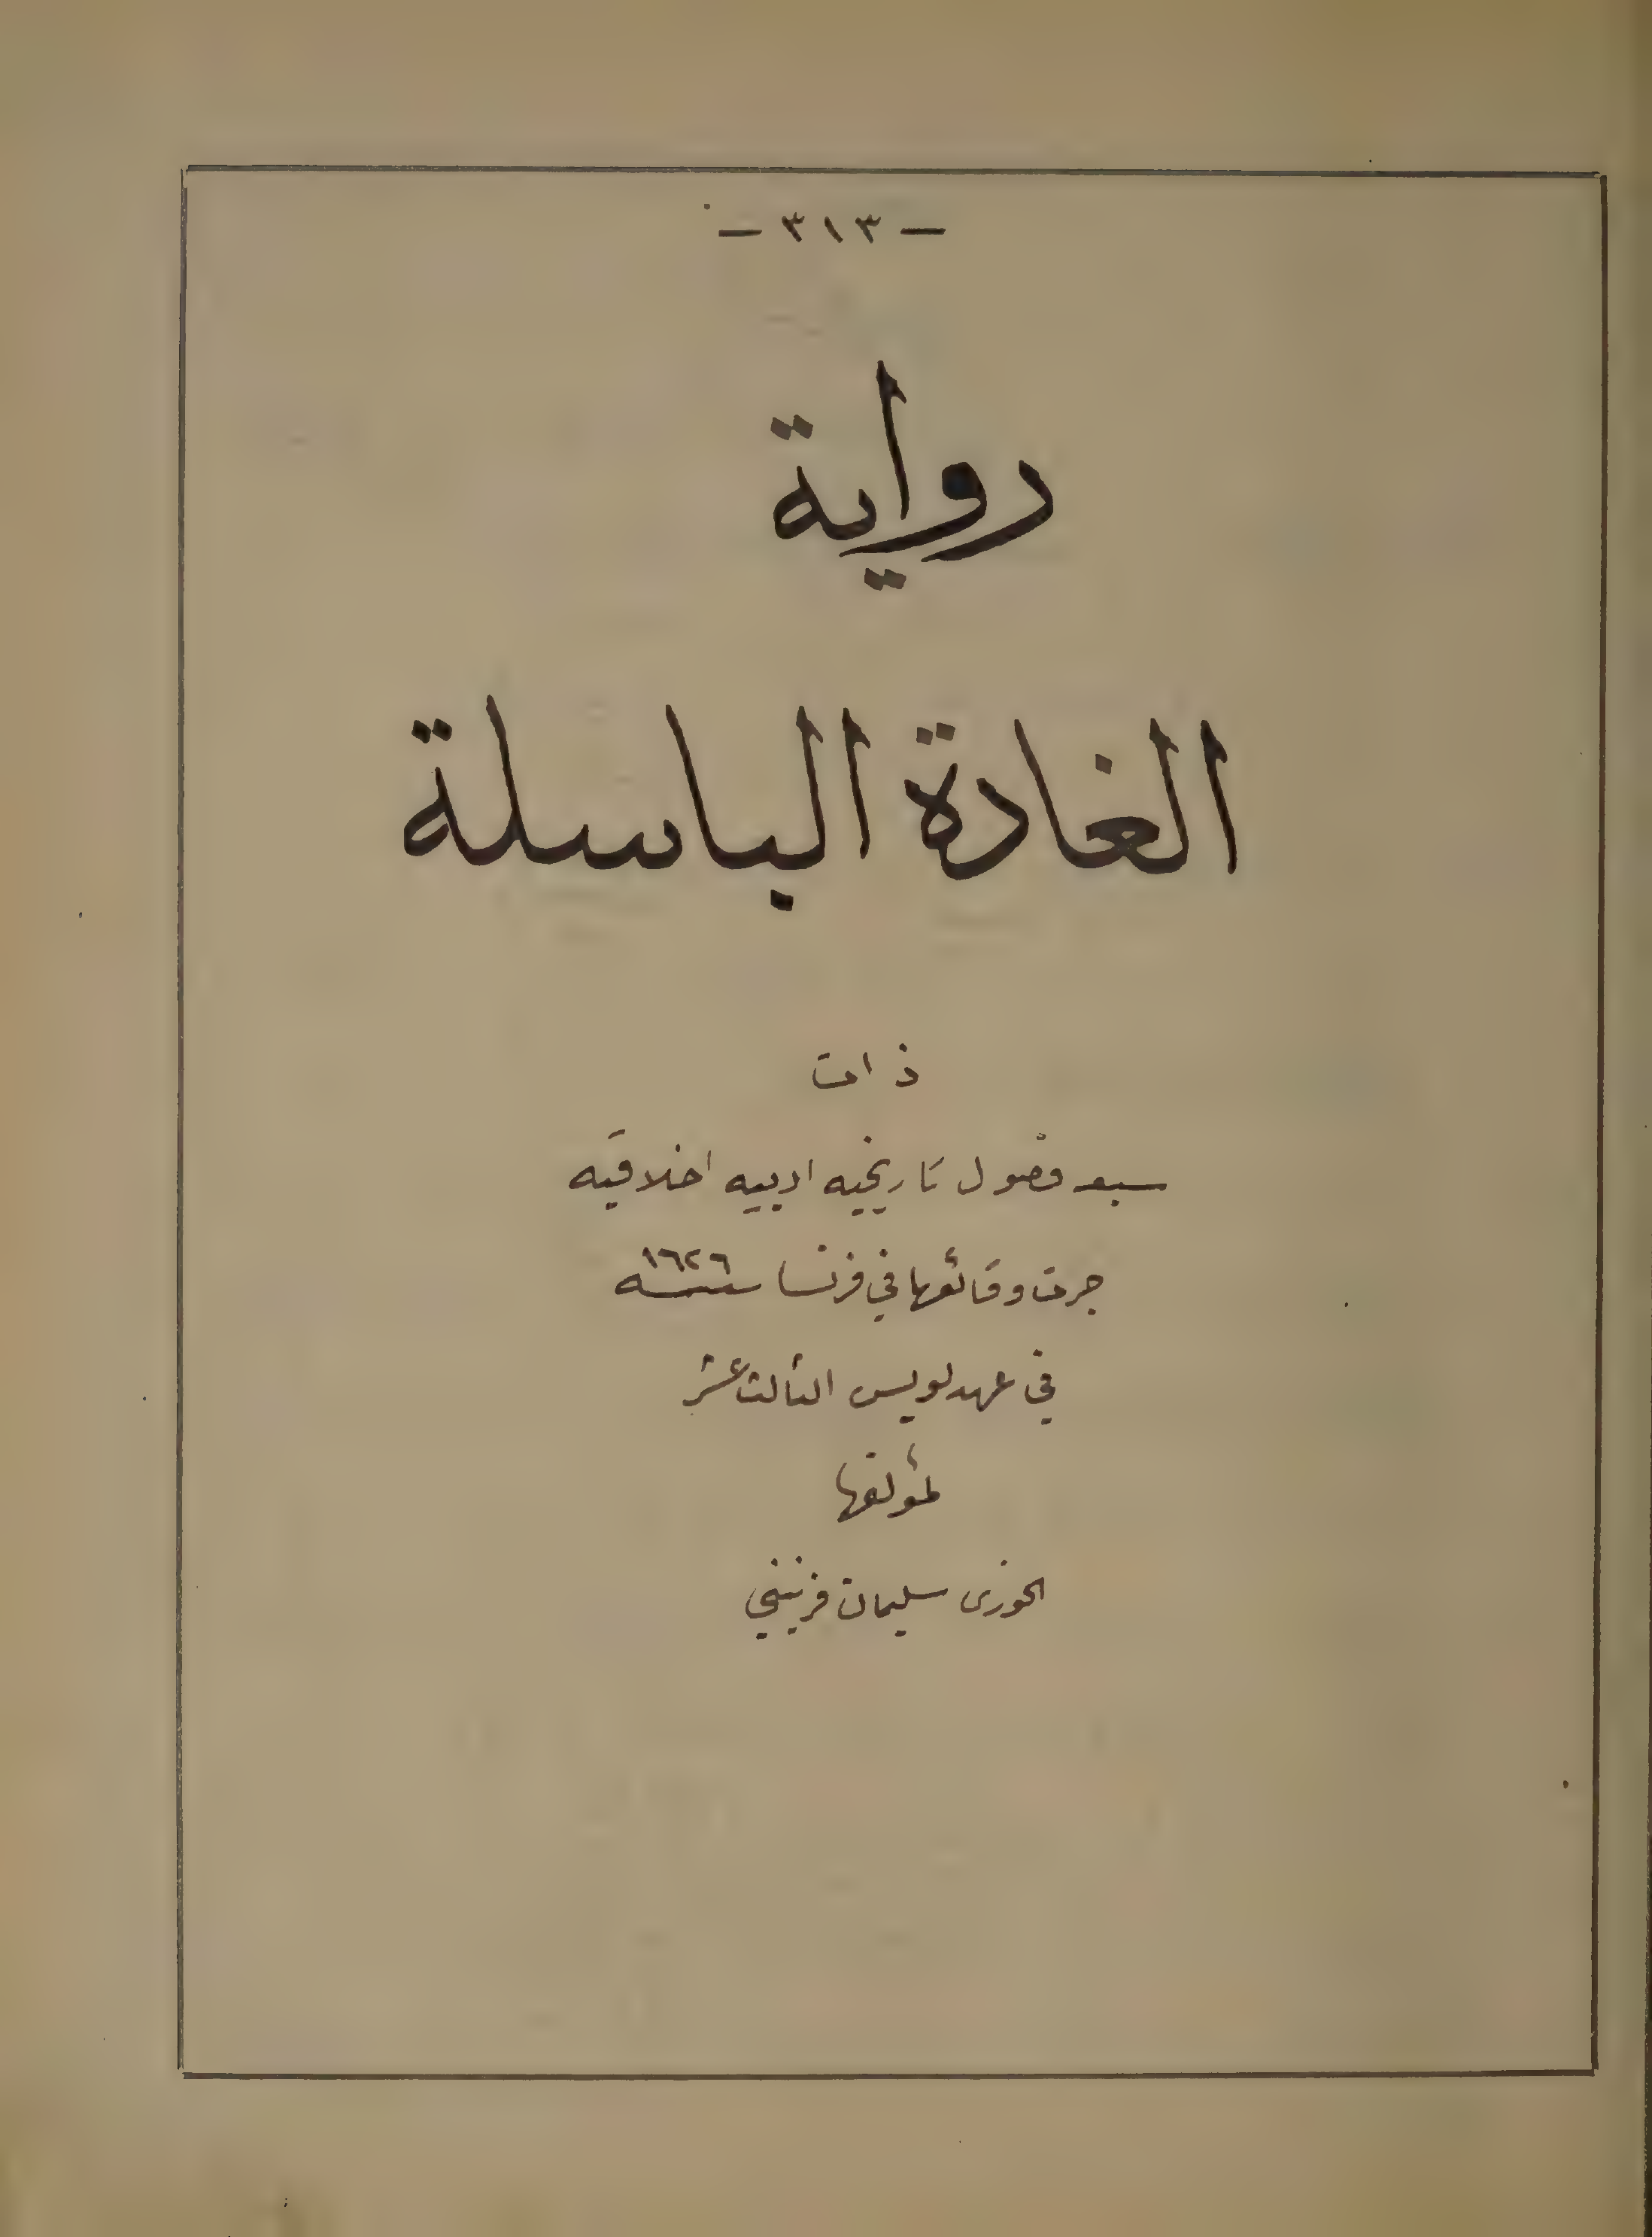 — ٣١٣ —
رواية
الغادة الباسلة
ذات
سبع فصول تاريخيه ادبيه اخلاقيه
جرت وقائعها في فرنسا سنه ١٦٢٦
في عهد لويس الثالث عشر
لمؤلفها
الخوري سليمان